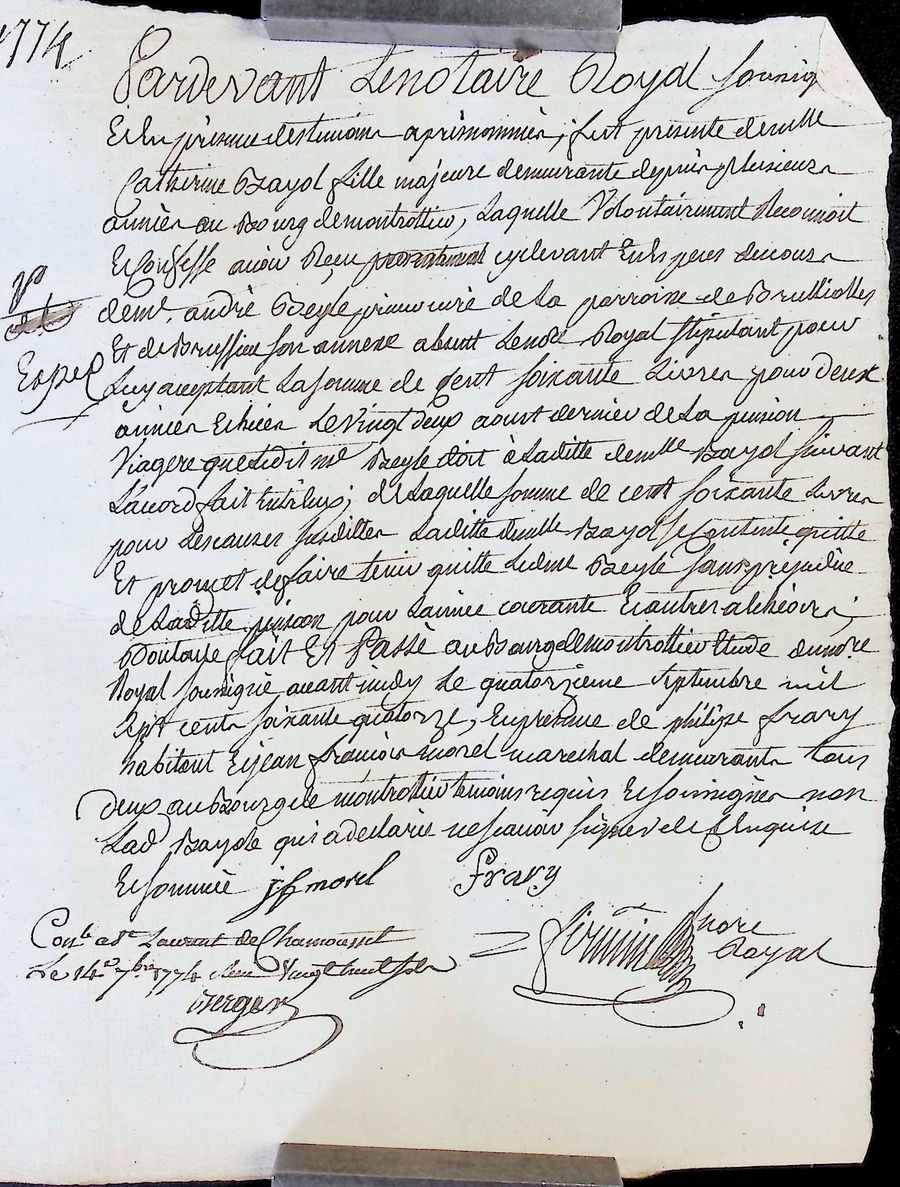 1774
Pardevant Le notaire Royal soussig
Et En présence des temoins apres nommés, fut presente demlle
Catherine Bayol fille majeure demeurante depuis plusieurs
années au Bourg de montrottier, Laquelle Volontairement Reconnoit
Et Confesse avoir Reçu cydevant En Especes de cours
de mr. andré Beyle prieur curé de La parroisse de Brullioles
Et de Brussieu son annexe absent Le nore Royal stipulant pour
Luy acceptant La somme de Cent soixante Livres pour deux
années Echües Le Vingt deux aoust dernier de La pension
Viagere que Ledit mre Beyle doit à Laditte demlle Bayol suivant
L'accord fait Entr'Eux; de Laquelle somme de cent soixante Livres
pour Les causes susdittes Laditte demlle Bayol se Contente quitte
Et promet de faire tenir quitte Led mre Beyle sans préjudice
de Laditte pension pour L'année courante Et autres a Echeoir;
Dont acte fait Et Passé au Bourg de montrottier Etude du nore
Royal soussigné avant midy Le quatorzieme septembre mil
sept cent soixante quatorze, En presence de philipe frary
habitant Et jean françois morel marechal demeurants tous
deux au Bourg de montrottier temoins requis Et soussignés non
Lad Bayole qui a declaré ne scavoir signer de ce Enquise
Et sommée jf morel frary
Conlé a Ste Laurent de Chamousset
Le 14e 7bre 1774 Reçu Vingt huit sols
nore
Royal
Berger
Exped